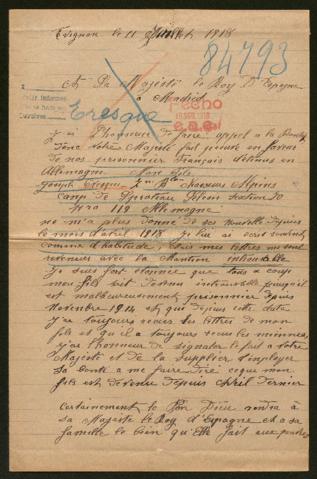 Avignon le 11 Juillet 1918
84793
A Sa Majesté le Roy D'Espagne
à Madrid
Fecho
Eresque
j'ai l'honneur de faire appel à la Bonté
dont votre Majesté fait preuve en faveur
de nos prisonnier Français détenus en
Allemagne Mon fils
Joseph Chasseurs Alpins
Camp de section 10
119 Allemagne
ne m'a plus donné de ses nouvelle depuis
le mois d'avril 1918 je lui ai écrit souvent
comme d'habitude, tous mes lettres me sont
revenues avec la Mention introuvable
Je suis fort étonnée que tous à coups
mon fils soit devenu introuvable puisqu'il
est malheureusement prisonnier depuis
Novembre 1914 et que depuis cette date
j'ai toujours reçus les lettres de mon
fils et qu'il a toujours reçus les miennes,
j'ai l'honneur de signaler le fait à votre
Majesté et de la supplier d'employer
sa Bonté à me faire dire ce que mon
fils est devenu depuis Avril Dernier
Certainement le Bon Dieu rendra à
sa Majesté le Roy d'Espagne et à sa
famille le bien qu'Elle fait aux pauvres